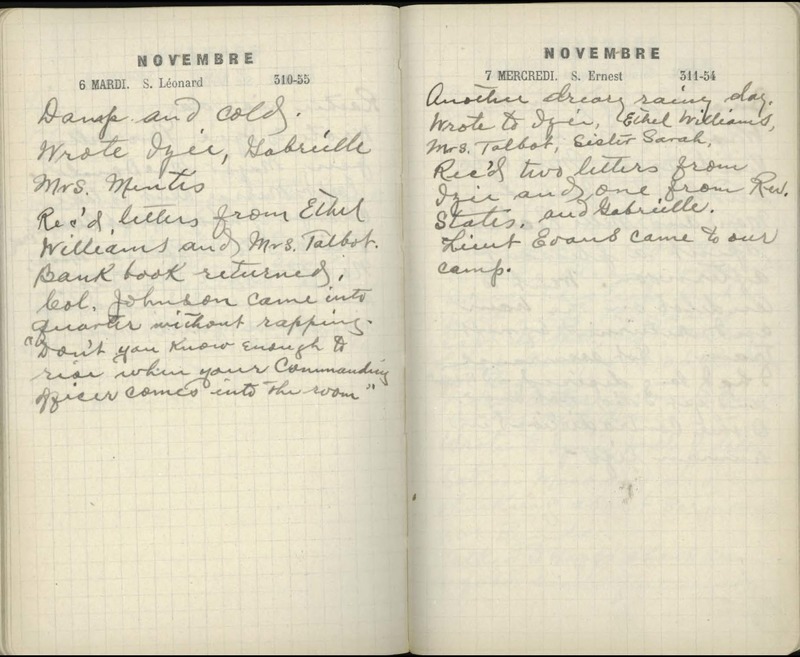 NOVEMBRE
6 MARDI. S. Léonard 310-55
Damp and cold.
Wrote Izie, Gabriélle
Mrs. Mentis
Rec'd letters from Ethel
Williams and Mrs. Talbot.
Bank book returned.
Col. Johnson came into
quarter without rapping.
"Don't you know enough to
rise when your Commanding
officer comes into the room"
NOVEMBRE
7 MERCREDI. S. Ernest 311-54
Another dreary rainy day.
Wrote to Izie, Ethel Williams,
Mrs. Talbot, Sister Sarah,
Rec'd two letters from
Izie and one from Rev.
States. and Gabriélle.
Lieut Evans came to our
camp.